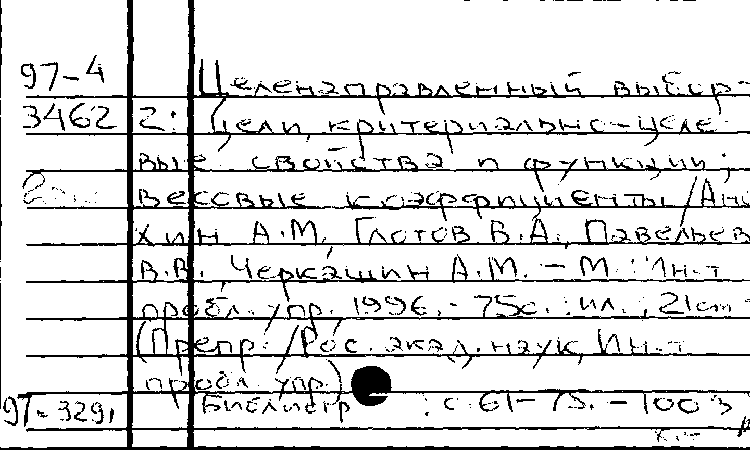 97-4 Целенаправленный выбор-
3462 2: Цели, критериально-целе
вые свойства и функции;
вессвые коэффициенты /Ано
хин А.М, Глотов В.А., Павельев
В.В., Черкашин А.М. – М.: Ин-т
пробл. упр., 1996. - 75с.: ил.; 21cm -
(Препр. /Рос. акад. наук, Ин-т
пробл. упр.)
97-3291 Библиогр : с. 61-75. - 100 э